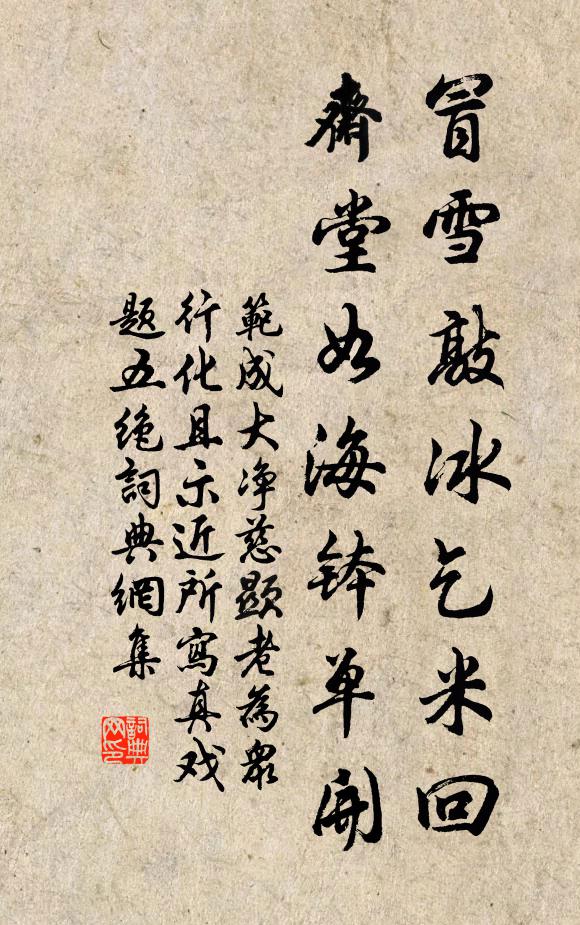 冒雪敲冰乞米回
齋堂如海鉢單開
範成大净慈顯老為眾
行化且示近所寫真戏
题五绝詞典網集
詞典
网印